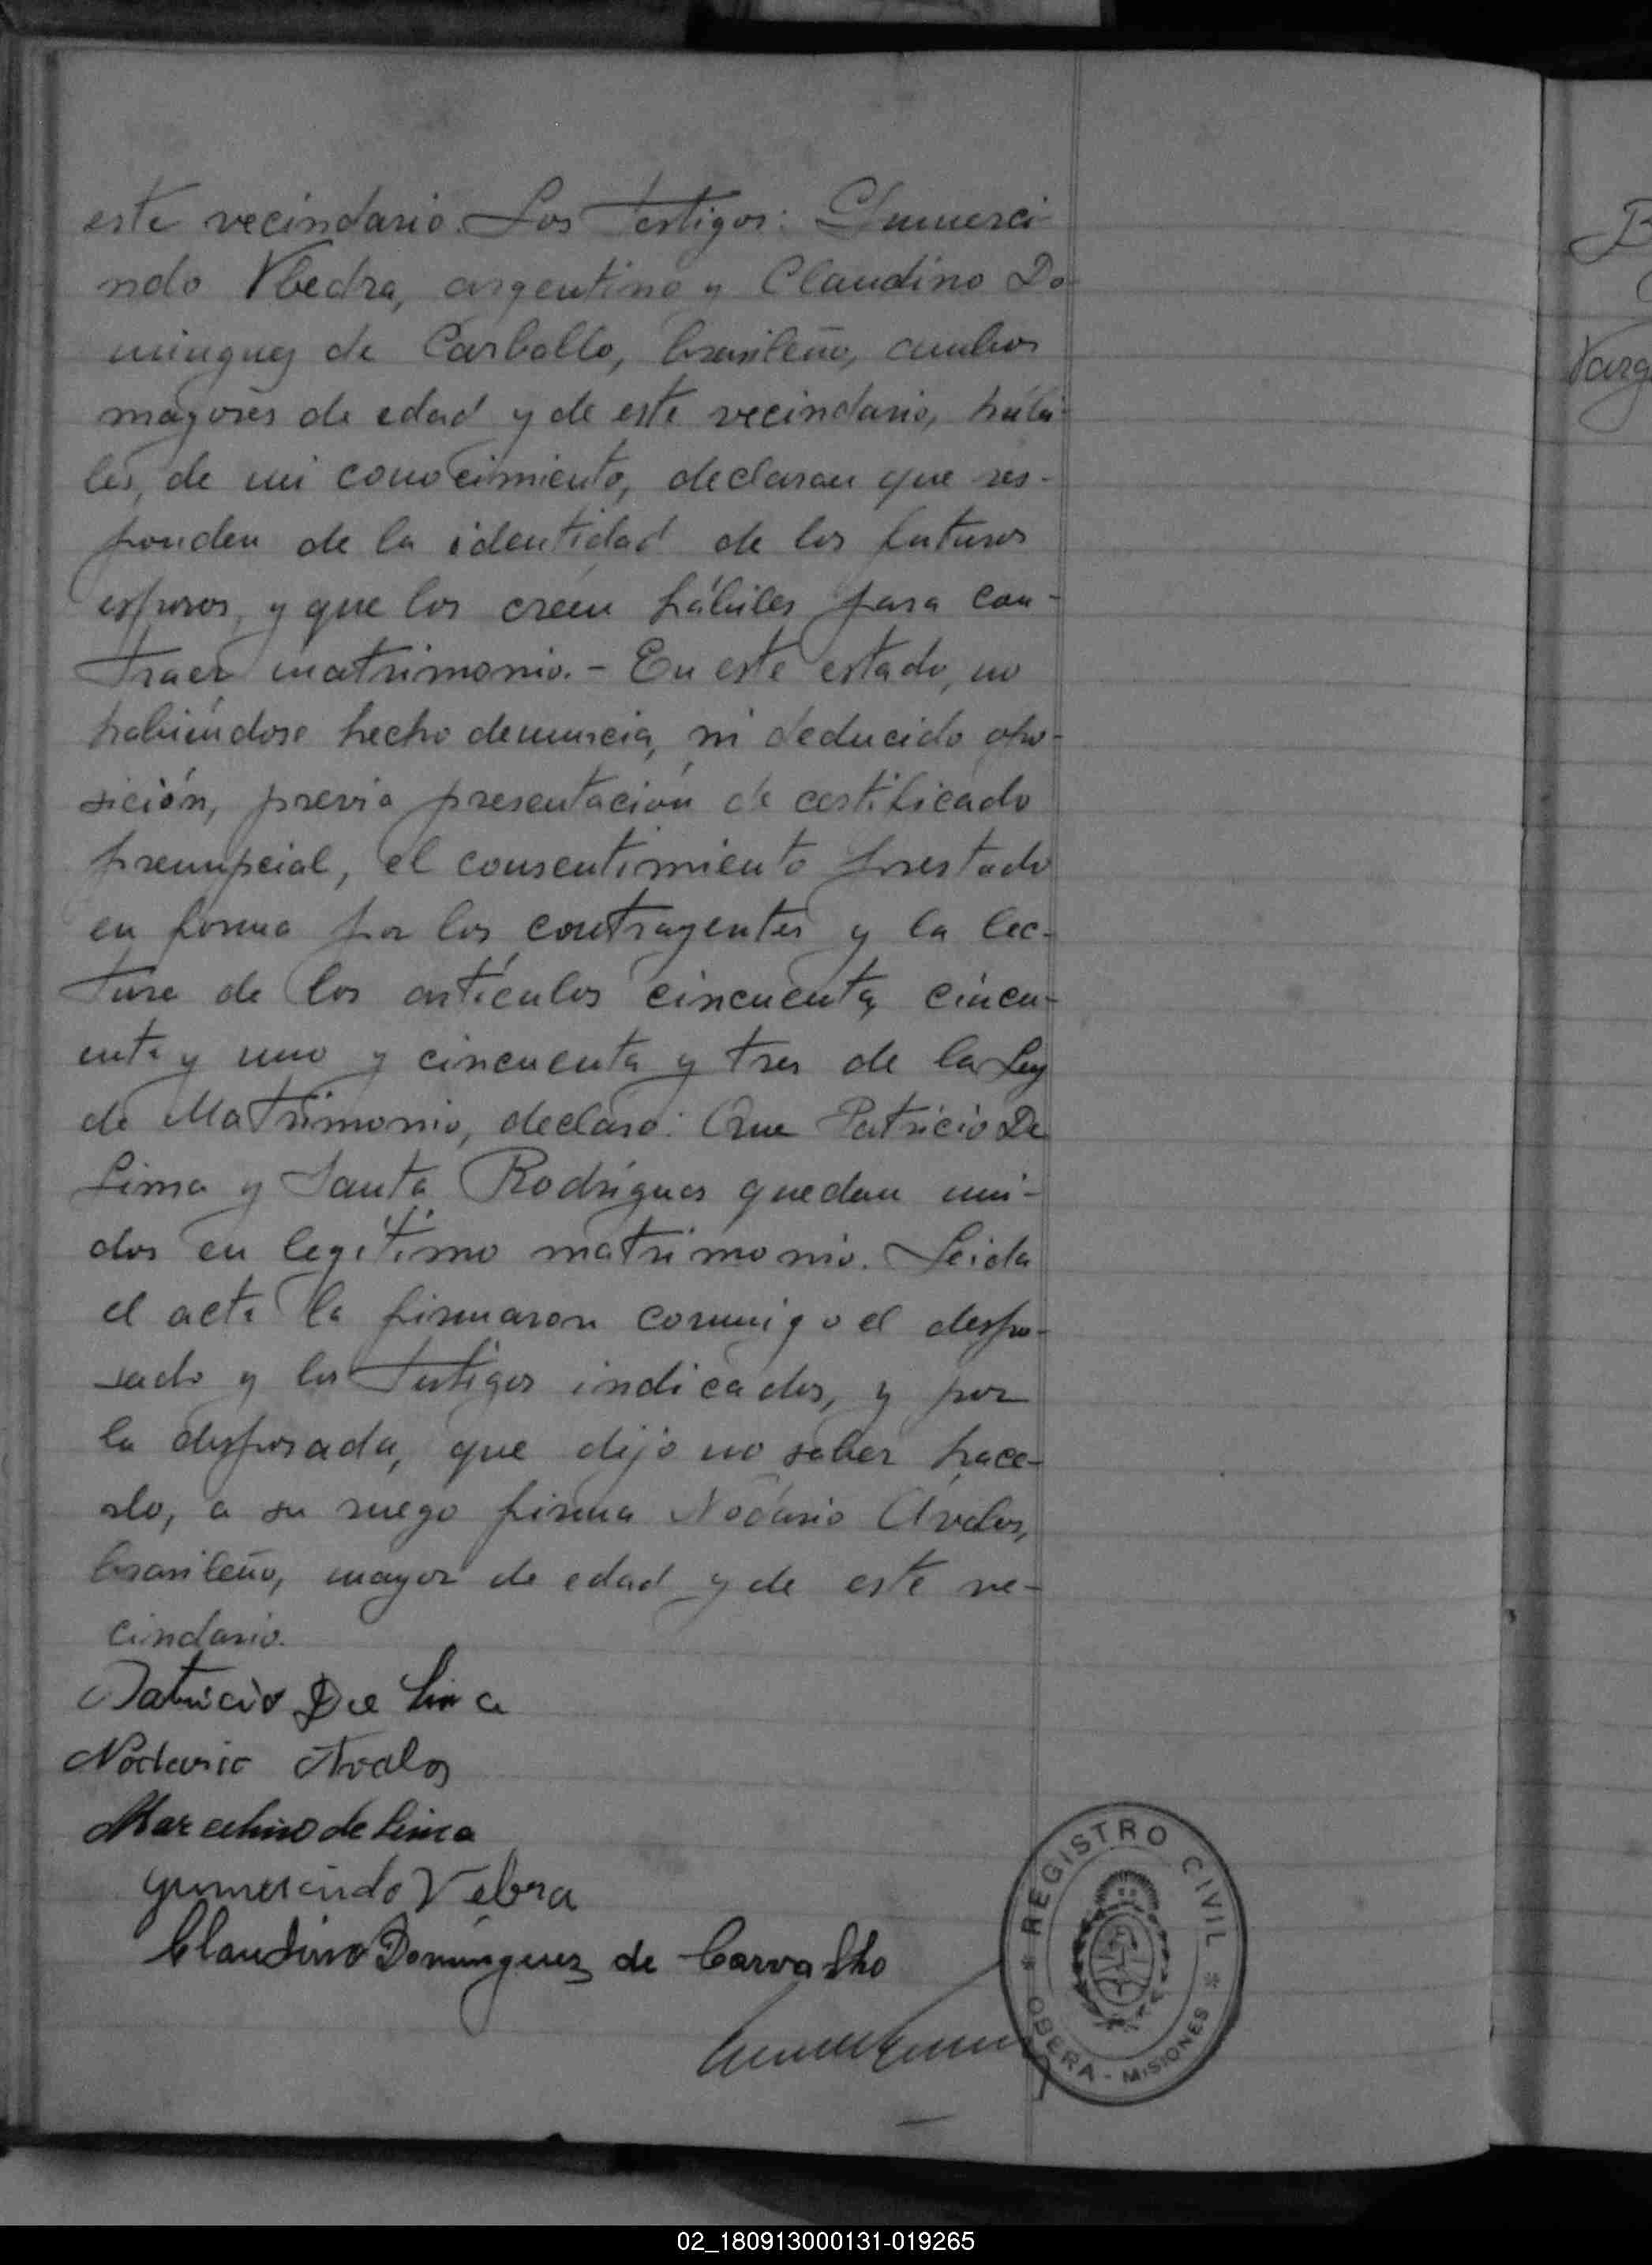 este vecindario. Los Testigos: Gumerci-
ndo Vbedra, argentino y Claudino Do-
minguez de Carballo, brasileño, ambos
mayores de edad y de este vecindario, hábi-
les, de mi conocimiento, declaran que res-
ponden de la identidad de los futuros
esposos, y que los creen hábiles para con-
traer matrimonio. - En este estado, no
habiéndose hecho denuncia, ni deducido opo-
sición, previa presentación de certificado
prenupcial, el consentimiento prestado
en forma por los contrayentes y la lec-
tura de los artículos cincuenta, cincu-
enta y uno y cincuenta y tres de la Ley
de Matrimonio, declaro: Que Patricio De
Lima y Santa Rodrigues quedan uni-
dos en legítimo matrimonio. Leida
el acta la firmaron conmigo el despo-
sado y los Testigos indicados, y por
la desposada, que dijo no saber hace-
rlo, a su ruego firma Nodario Ávalos,
brasileño, mayor de edad y de este ve-
cindario.
Patricio De Lima
Nodario Avalos
Marcelino de Lima
gumersindo Vebra
Claudino Dominguez de Carvalho
REGISTRO CIVIL
OBERA - MISIONES
B
Varg
02_180913000131-019265